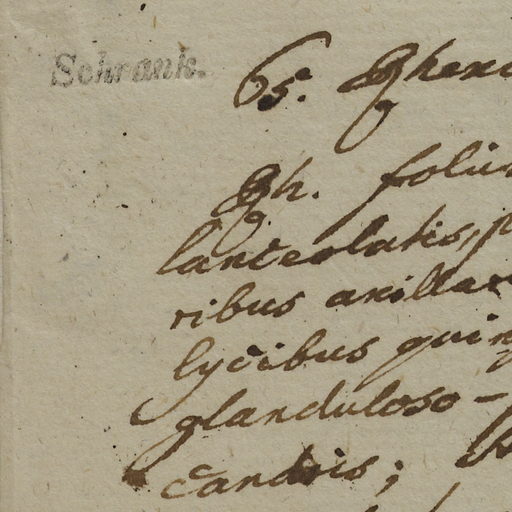 Schrank.
65.
folii
lanceolatis, p
ribus axillar
lycibus quin
glanduloso-
candois;